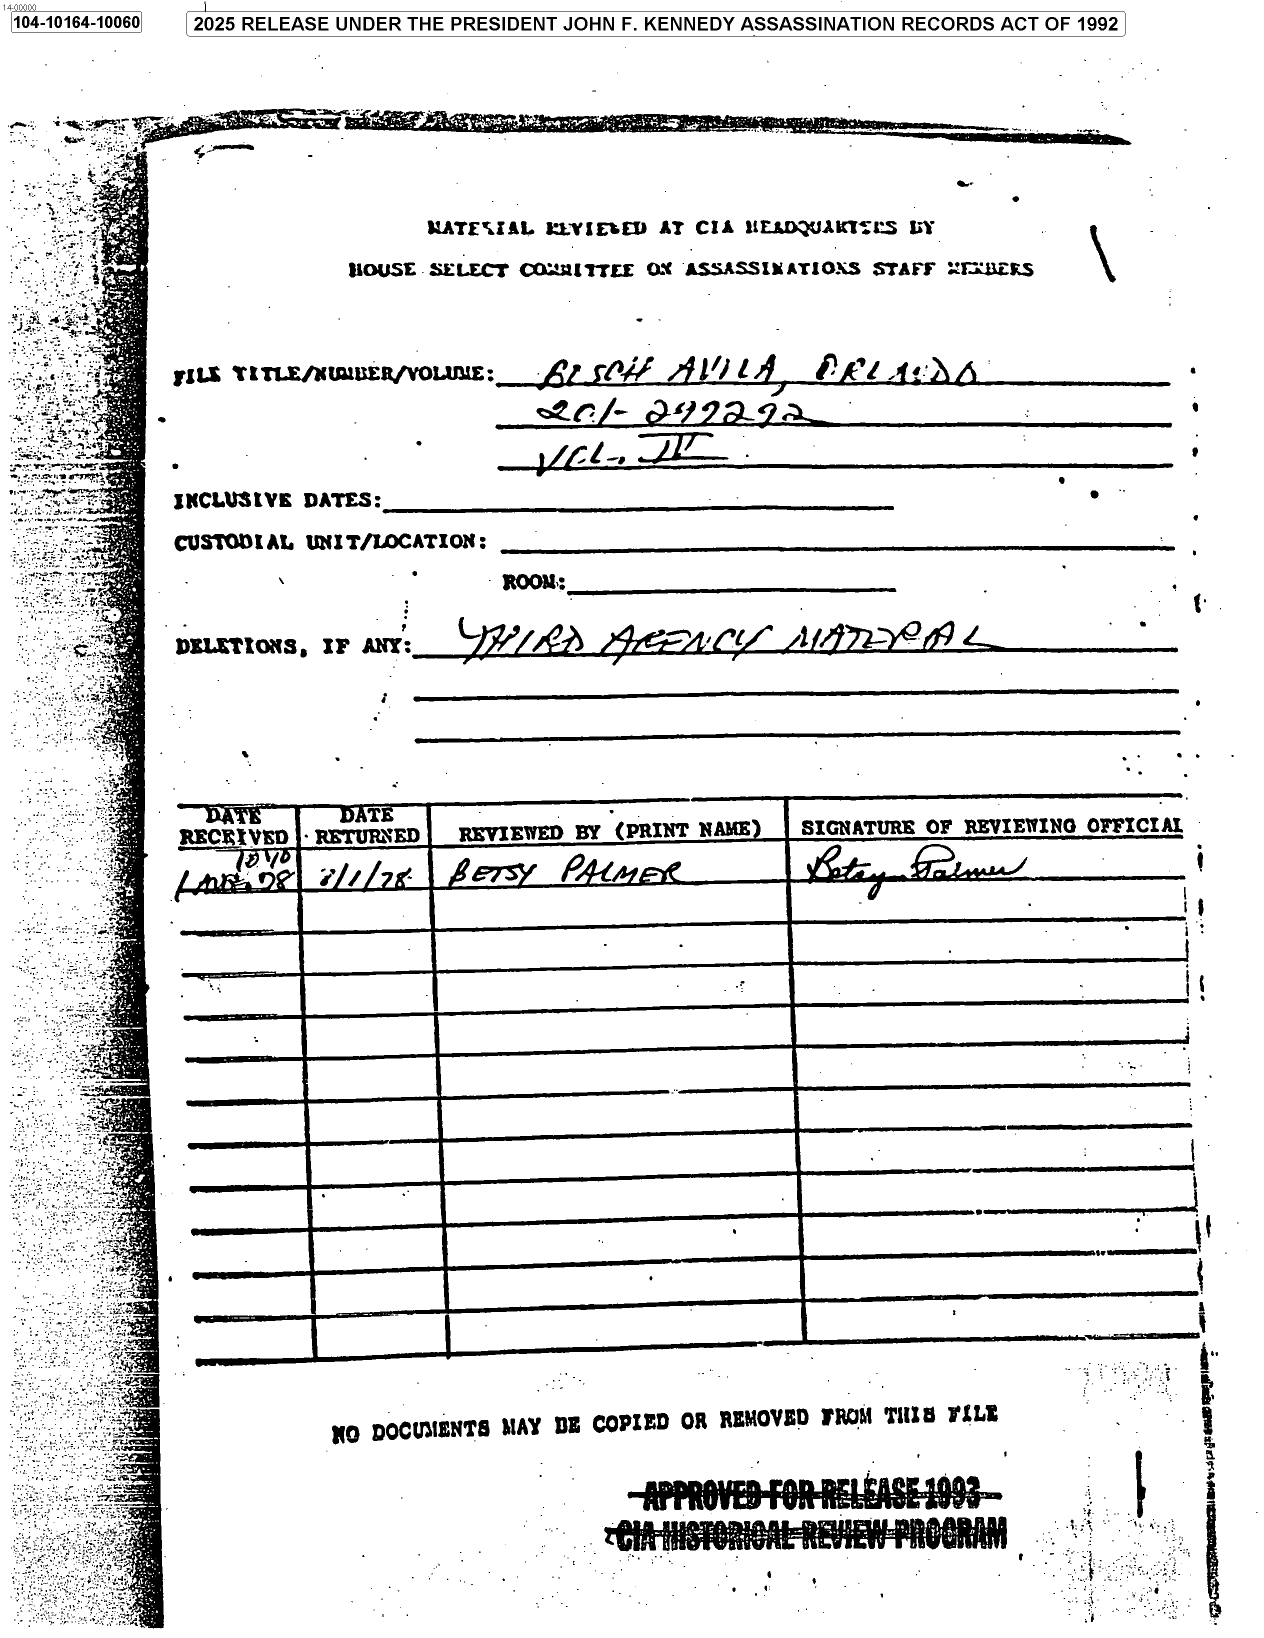 14-00000
104-10164-10060
2025 RELEASE UNDER THE PRESIDENT JOHN F. KENNEDY ASSASSINATION RECORDS ACT OF 1992
MATERIAL REVIEWED AT CIA HEADQUARTERS BY
HOUSE SELECT COMMITTEE ON ASSASSINATIONS STAFF MEMBERS
FILE TITLE/NUMBER/VOLUME: BISCH AVILA, ORLANDO
201-299292
VOL. IV
INCLUSIVE DATES:
CUSTODIAL UNIT/LOCATION:
ROOM:
DELETIONS, IF ANY: THIRD AGENCY MATERIAL
DATE RECEIVED DATE RETURNED REVIEWED BY (PRINT NAME) SIGNATURE OF REVIEWING OFFICIAL
1 AUG. 78 8/1/78 BETSY PALMER Betsy Palmer
NO DOCUMENTS MAY BE COPIED OR REMOVED FROM THIS FILE
APPROVED FOR RELEASE 1993
CIA HISTORICAL REVIEW PROGRAM